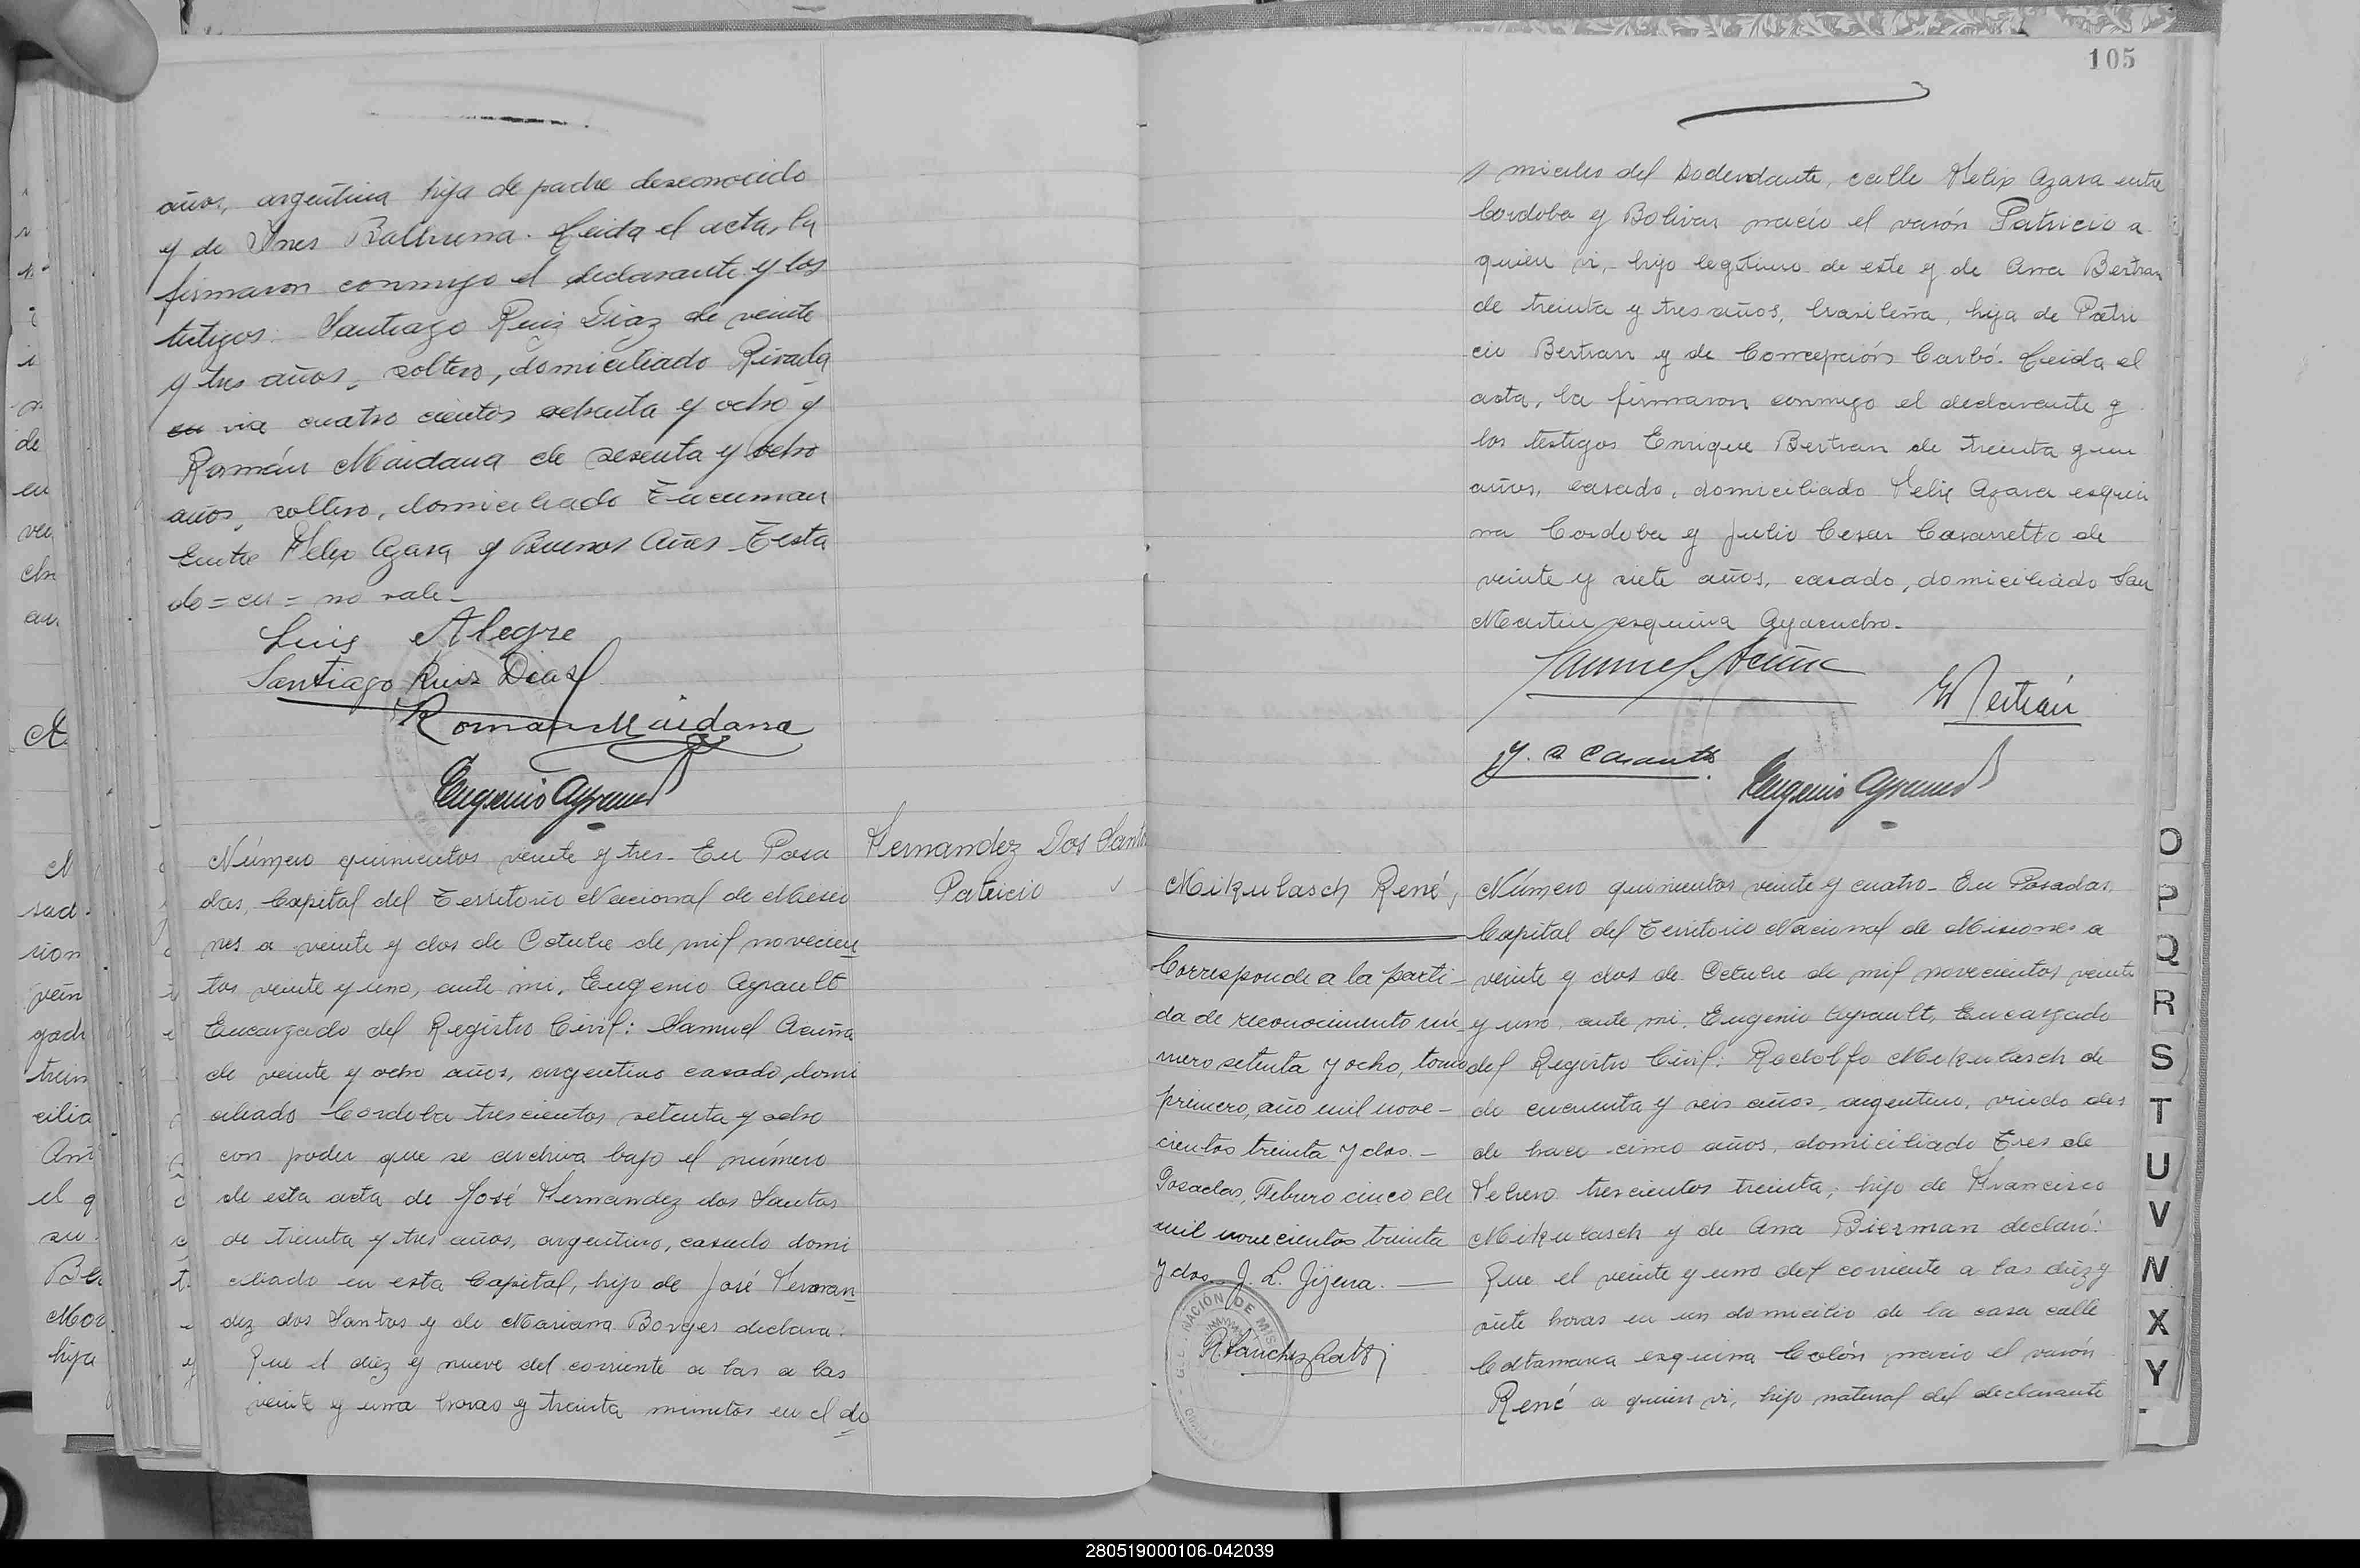 años, argentina hija de padre desconocido
y de Ines Balbuena. Leida el acta, la
firmaron conmigo el declarante y los
testigos: Santiago Ruiz Diaz de veinte
y tres años, soltero, domiciliado Rivada
en via cuatro cientos ochenta y ocho y
Román Maidana de sesenta y ocho
años, soltero, domiciliado Tucuman
entre Felix Azara y Buenos Aires. Testa
do = en = no vale_
Luis Alegre
Santiago Ruis Dias
Roman Maidana
Eugenio Ayrault
Hernandez Dos Santos
Patricio
Número quinientos veinte y tres_ En Posa
das, Capital del Territorio Nacional de Misio
nes a veinte y dos de Octubre de mil novecien
tos veinte y uno, ante mi, Eugenio Ayrault
Encargado del Registro Civil: Samuel Acuña
de veinte y ocho años, argentino casado, domi
ciliado Cordoba trescientos setenta y ocho
con poder que se archiva bajo el número
de esta acta de José Hernandez dos Santos
de treinta y tres años, argentino, casado domi
ciliado en esta Capital, hijo de José Hernan
dez dos Santos y de Mariana Borges declara:
Que el diez y nueve del corriente a las a las
veinte y una horas y treinta minutos en el do
105
micilio del poderdante, calle Felix Azara entre
Cordoba y Bolivar nació el varón Patricio a
quien vi, hijo legitimo de este y de Ana Bertran
de treinta y tres años, brasileña, hija de Patri
cio Bertran y de Concepción Carbó. Leida el
acta, la firmaron conmigo el declarante y
los testigos Enrique Bertran de treinta y un
años, casado, domiciliado Felix Azara esqui
na Cordoba y Julio Cesar Casarretto de
veinte y siete años, casado, domiciliado San
Martin esquina Ayacucho_
Samuel Acuña
E Bertrán
J. C Casaretto
Eugenio Ayrault
Mikulasch René,
Corresponde a la parti_
da de reconocimiento nú_
mero setenta y ocho, tomo
primero, año mil nove_
cientos treinta y dos._
Posadas, Febrero cinco de
mil novecientos treinta
y dos. J. L. Jijena.
R. Sanchez Ratti
Número quinientos veinte y cuatro_ En Posadas,
Capital del Territorio Nacional de Misiones a
veinte y dos de Octubre de mil novecientos veinte
y uno, ante mi, Eugenio Ayrault, Encargado
del Registro Civil: Rodolfo Mikulasch de
de cincuenta y seis años, argentino, viudo des
de hace cinco años, domiciliado Tres de
Febrero trescientos treinta, hijo de Francisco
Mikulasch y de Ana Bierman declaró:
Que el veinte y uno del corriente a las diez y
siete horas en un domicilio de la casa calle
Catamarca esquina Colón nació el varón
René a quien vi, hijo natural del declarante
O
P
Q
R
S
T
U
V
W
X
Y
280519000106-042039